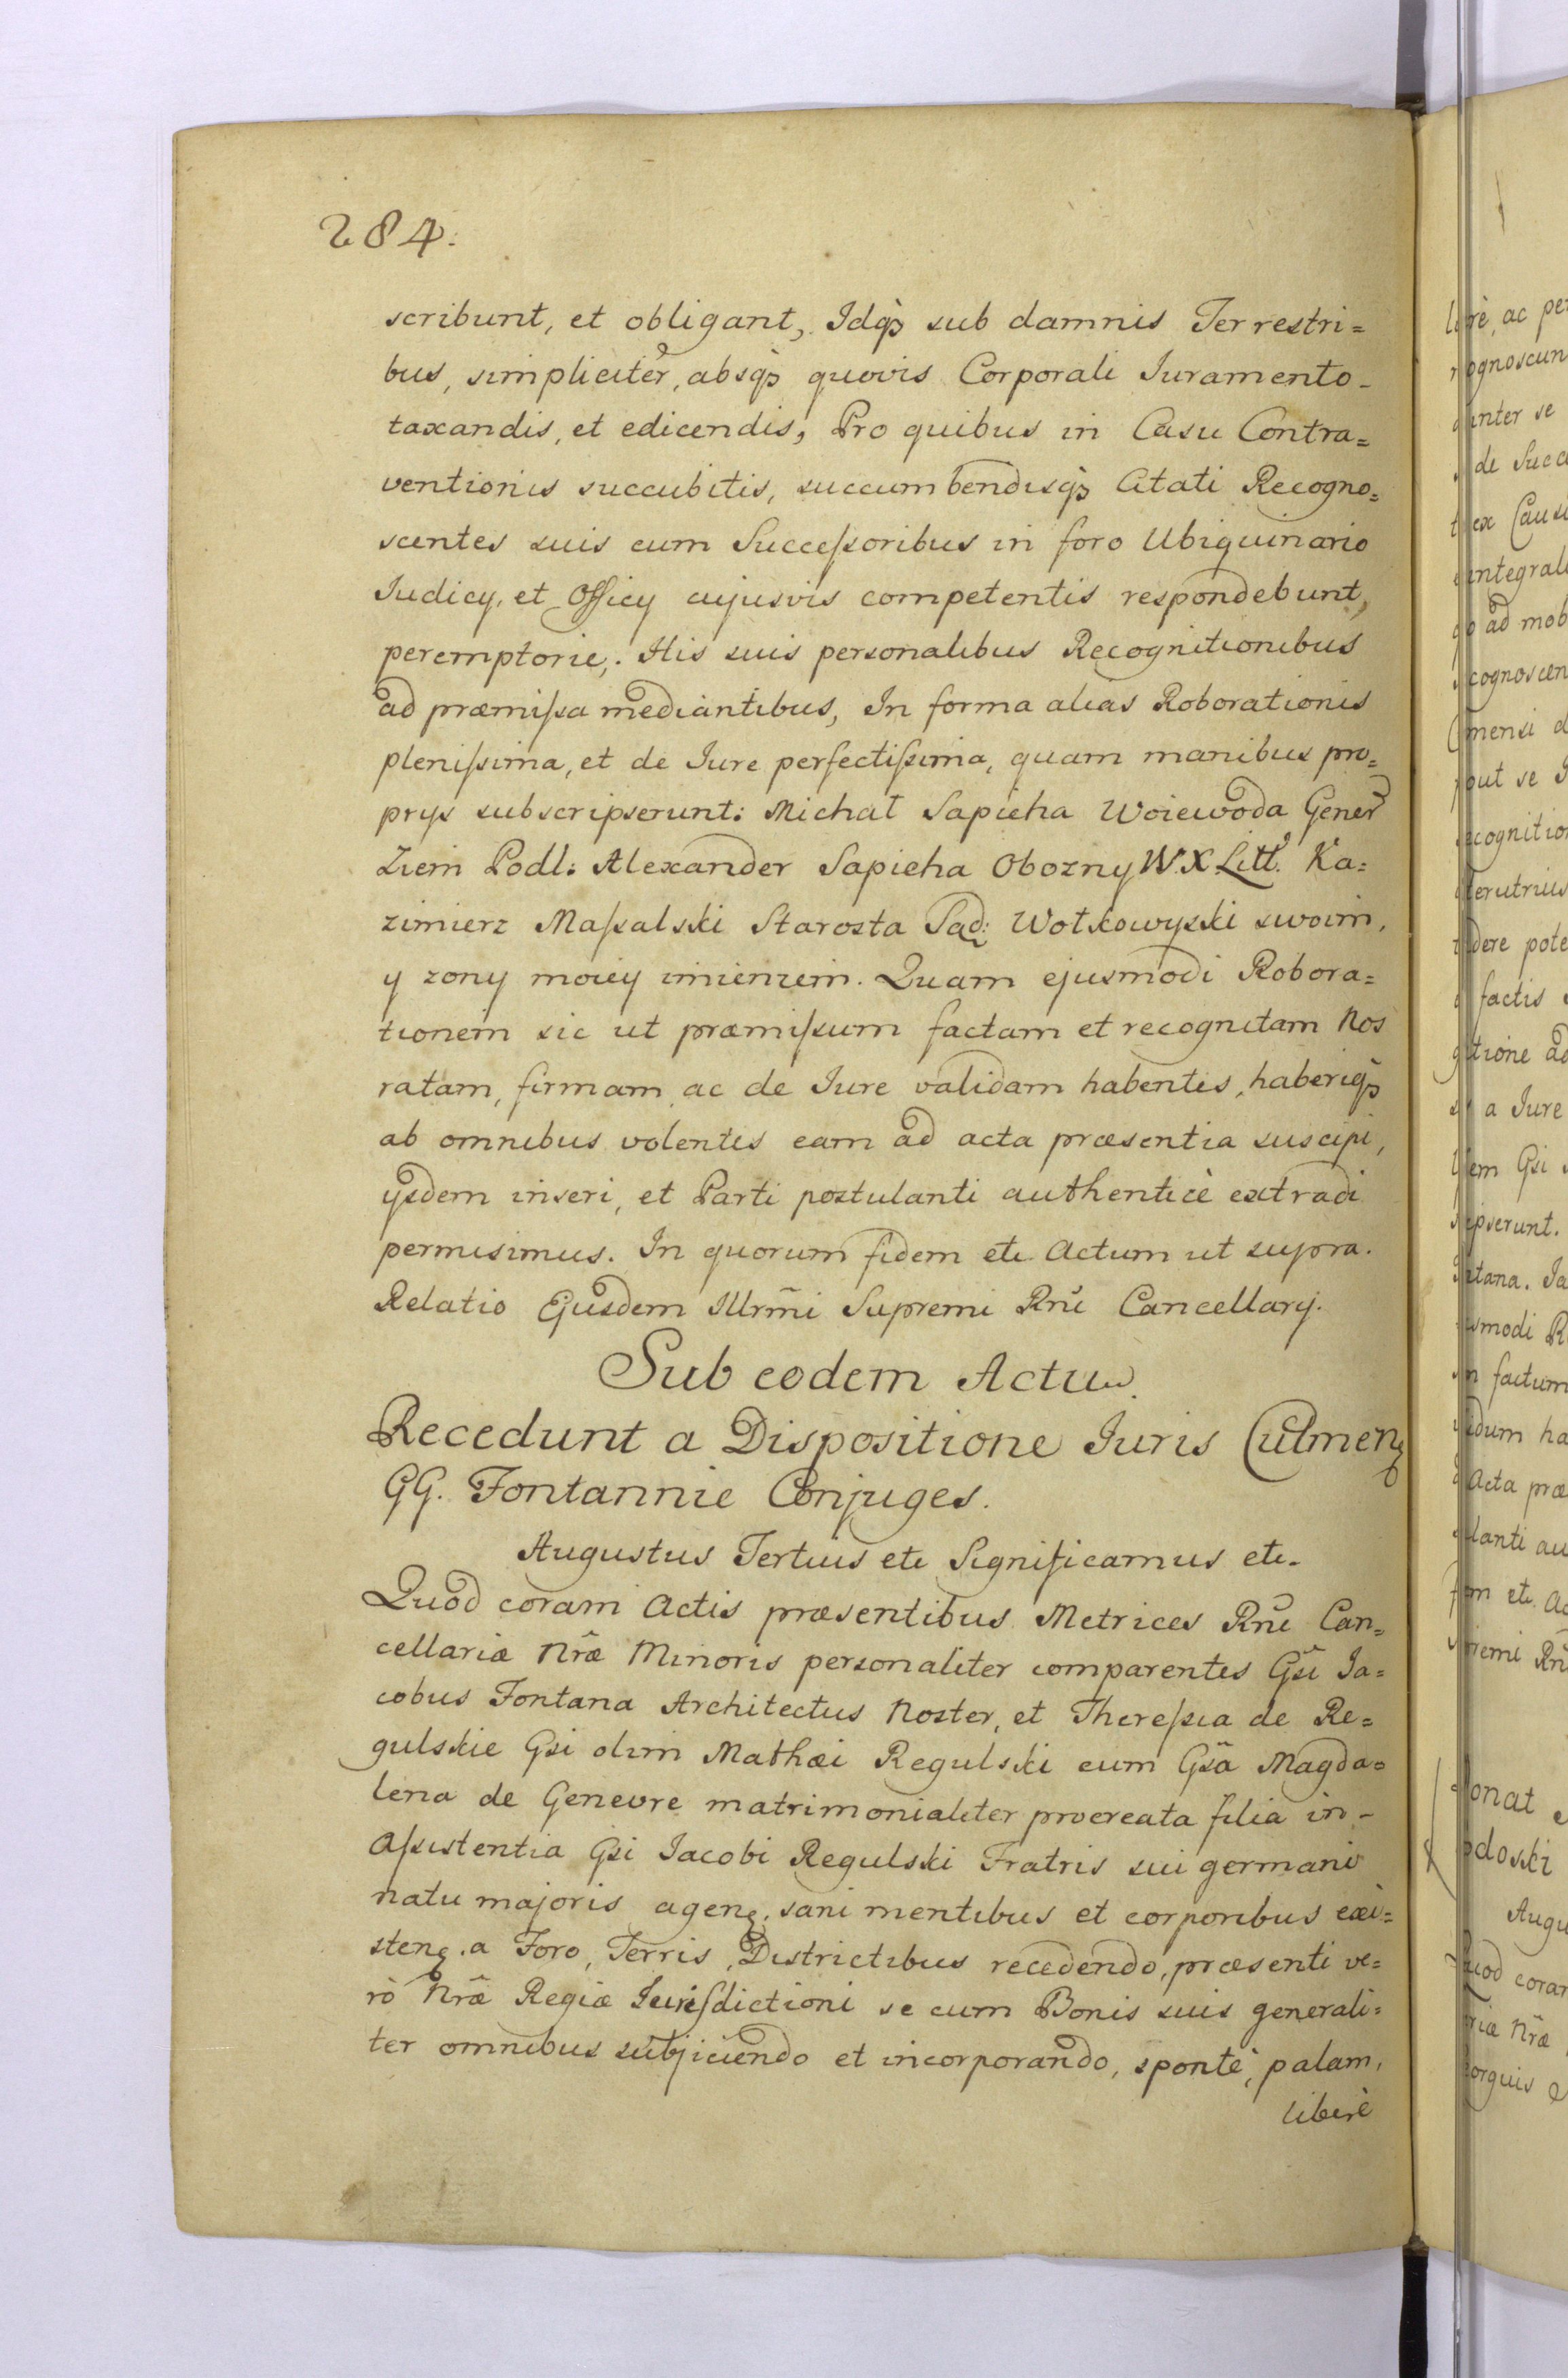 284.
scribunt, et obligant, Idqꝫ sub damnis Terrestri=
bus, simpliciter, absqꝫ quovis Corporali Iuramento
taxandis, et edicendis, Pro quibus in Casu Contra=
ventionis succubitis, succumbendisqꝫ Citati Recogno=
scentes suis cum Succeſsoribus in foro Ubiquinario
Iudicy, et Officy cujusvis competentis respondebunt,
peremptorie,. His suis personalibus Recognitionibus
ad præmiſsa mediantibus, In forma alias Roborationis
pleniſsima, et de Iure perfectiſsima, quam manibus pro=
prys subscripserunt: Michał Sapieha Woiewoda Gener
Ziem Podl: Alexander Sapieha Obozny W.X.Litt. Ka=
zimierz Maſsalski Starosta Sąd: Wołkowyski swoim,
y zony moiey imieniem. Quam ejusmodi Robora=
tionem sic ut præmiſsum factam et recognitam Nos
ratam, firmam ac de Iure validam habentes, haberiqꝫ
ab omnibus volentes eam ad acta præsentia suscipi,
ysdem inseri, et Parti postulanti authenticè extradi
permisimus. In quorum fidem etc Actum ut supra.
Relatio Ejusdem Illrm̃i Supremi Rñi Cancellary.
Sub eodem Actu.
Recedunt a Dispositione Iuris Culmenꝫ
GG. Fontannie Conjuges.
Augustus Tertius etc Significamus etc.
Quod coram Actis præsentibus Metrices Rñi Can=
cellariæ Nr̃æ Minoris personaliter comparentes Gs̃i Ia=
cobus Fontana Architectus Noster, et Thereſsia de Re=
gulskie Gsi olim Mathæi Regulski cum Gs̃a Magda=
lena de Genevre matrimonialiter procreata filia in
Aſsistentia Gsi Iacobi Regulski Fratris sui germani
natu majoris agenꝫ, sani mentibus et corporibus exi=
stenꝫ. a Foro, Terris, Districtibus recedendo, præsenti ve=
rò Nr̃æ Regiæ Iurisdictioni se cum Bonis suis generali=
ter omnibus subjiciendo et incorporando, spontè, palam,
liberè